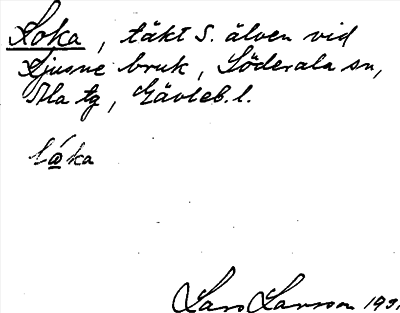 Loka, täkt S. älven vid
Ljusne bruk, Söderala sn,
Ala tg, Gävleb. l.
lo̱ka
Lars Larsson 193